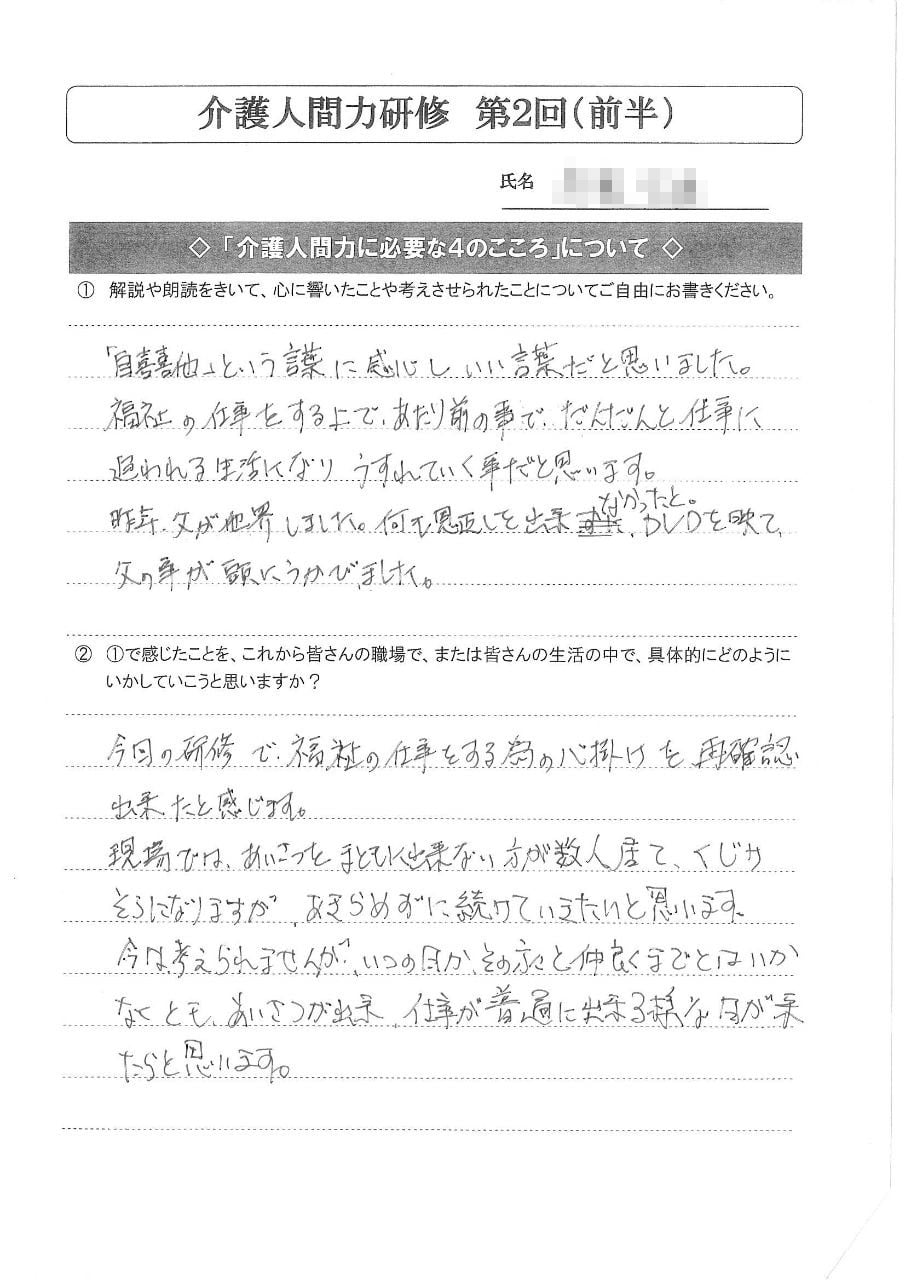 介護人間力研修 第2回(前半)
氏名
◇「介護人間力に必要な4のこころ」について◇
① 解説や朗読をきいて、心に響いたことや考えさせられたことについてご自由にお書きください。
「自喜喜他」という言葉に感心しいい言葉だと思いました。
福祉の仕事をする上で、あたり前の事で、だんだんと仕事に
追われる生活になり うすれていく事だと思います。
昨年、父が他界しました。何も恩返しを出来なかったと。DVDを映て、
父の事が頭にうかびました。
② ①で感じたことを、これから皆さんの職場で、または皆さんの生活の中で、具体的にどのように
いかしていこうと思いますか?
今回の研修で、福祉の仕事をする為の心掛けを再確認
出来たと感じます。
現場では、あいさつをまともに出来ない方が数人居て、くじけ
そうになりますが、あきらめずに続けていきたいと思います。
今は考えられませんが、いつの日か、その方々と仲良くまでとはいか
なくとも、あいさつが出来、仕事が普通に出来る様な日が来
たらと思います。